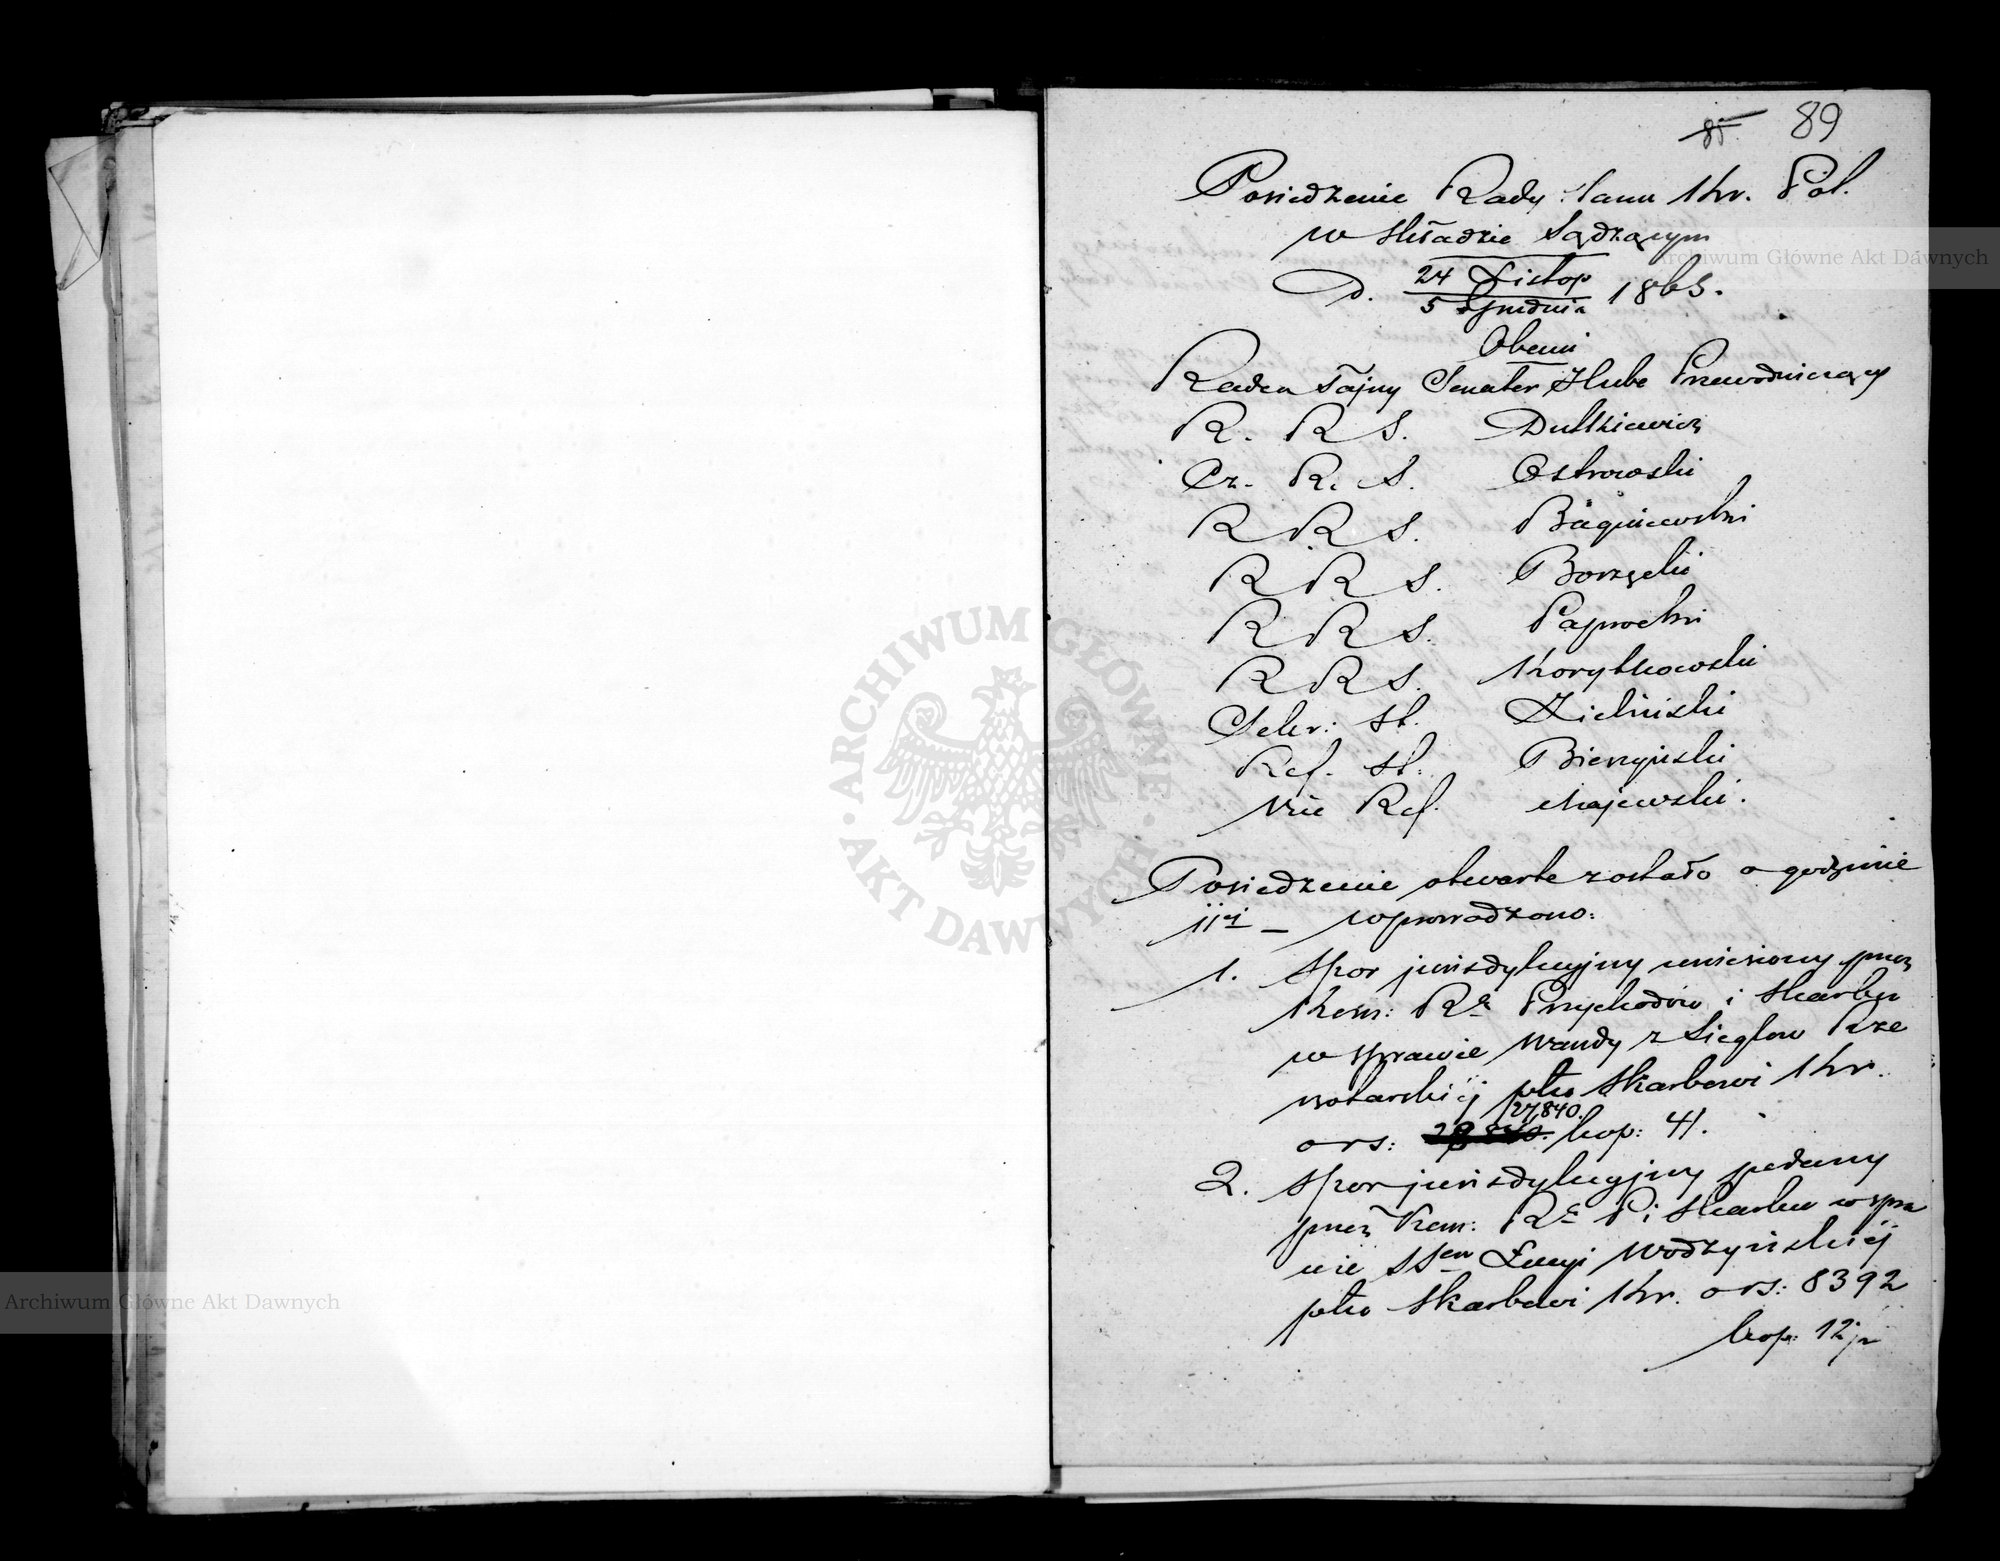 85 89
Posiedzenie Rady Stanu Kr. Pol.
w składzie Sądzącym
D. 24 Listop / 5 Grudnia 1863.
Obecni
Radca Tajny Senator Hube Przewodniczący
R. R S. Dutkiewicz
Cz. R. S. Ostrowski
R R S. Bagniewski
R R S. Borzęcki
R R S. Paprocki
R R S. Korytkowski
Sekr: St. Zieliński
Ref. St: Bierzyński
Vice Ref. Majewski.
Posiedzenie otwarte zostało o godzinie
11ej — wprowadzono:
1. Spor jurisdykcyjny wniesiony przez
Kom: Rą Przychodów i Skarbu
w sprawie Wandy z Sieglow Prze
wotarskiéj pko Skarbowi Kr.
27,840.
o rs: kop: 41.
2. Spor jurisdykcyjny podany
przez Kom: Rą P i Skarbu w spra
wie SSów Łucyi Wodzyńskiéj
pko Skarbowi Kr. o rs: 8392
kop: 12½
ARCHIWUM GŁÓWNE AKT DAWNYCH
Archiwum Główne Akt Dawnych
Archiwum Główne Akt Dawnych